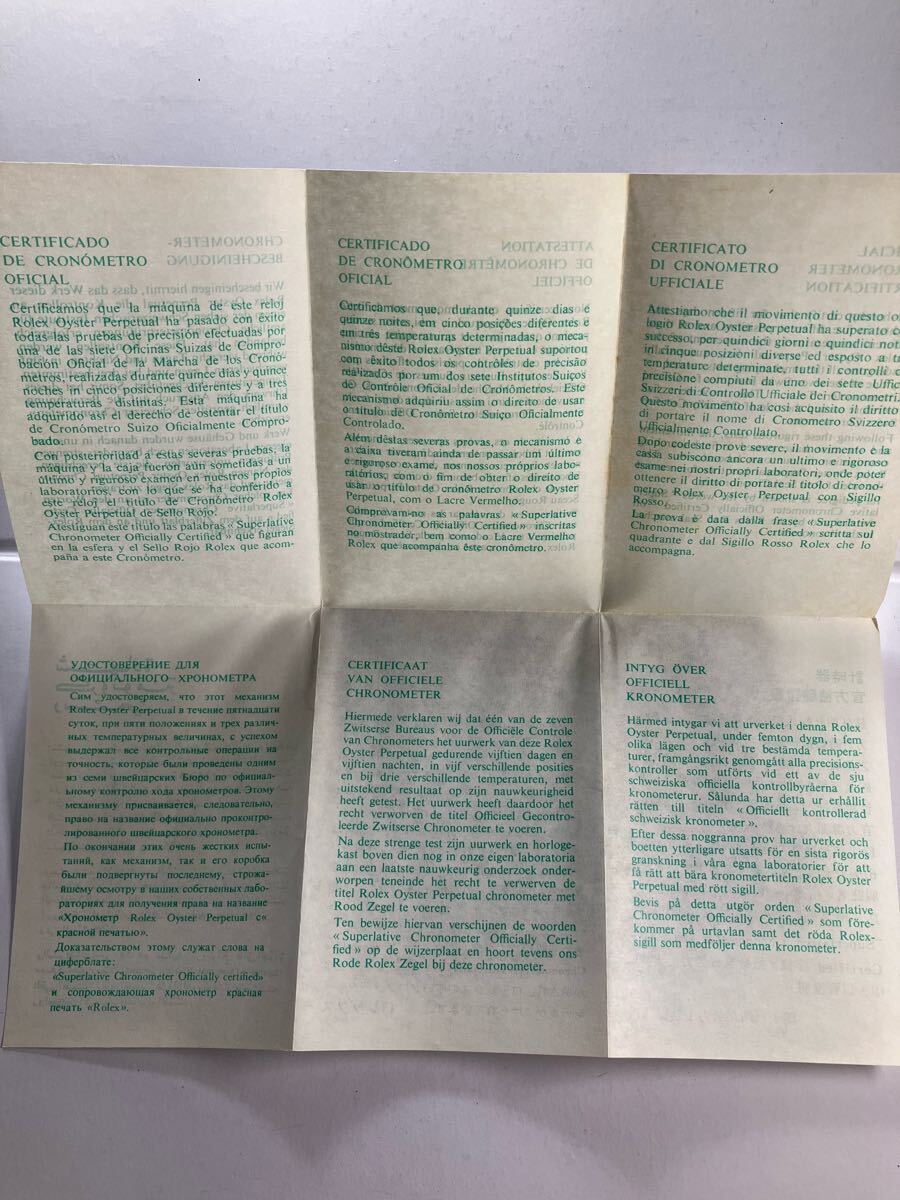 CERTIFICADO
DE CRONÓMETRO
OFICIAL
Certificamos que la máquina de este reloj
Rolex Oyster Perpetual ha pasado con éxito
todas las pruebas de precisión efectuadas por
una de las siete Oficinas Suizas de Compro-
bación Oficial de la Marcha de los Cronó-
metros, realizadas durante quince días y quince
noches en cinco posiciones diferentes y a tres
temperaturas distintas. Esta máquina ha
adquirido así el derecho de ostentar el título
de Cronómetro Suizo Oficialmente Compro-
bado.
Con posterioridad a estas severas pruebas, la
máquina y la caja fueron aún sometidas a un
último y riguroso examen en nuestros propios
laboratorios, con lo que se ha conferido a
este reloj el título de Cronómetro Rolex
Oyster Perpetual de Sello Rojo.
Atestiguan este título las palabras «Superlative
Chronometer Officially Certified» que figuran
en la esfera y el Sello Rojo Rolex que acom-
paña a este Cronómetro.
CERTIFICADO
DE CRONÔMETRO
OFICIAL
Certificamos que, durante quinze dias e
quinze noites, em cinco posições diferentes e
em três temperaturas determinadas, o meca-
nismo dêste Rolex Oyster Perpetual suportou
com êxito todos os contrôles de precisão
realizados por um dos sete Institutos Suiços
de Contrôle Oficial de Cronômetros. Este
mecanismo adquiriu assim o direito de usar
o título de Cronômetro Suiço Oficialmente
Controlado.
Além dêstas severas provas, o mecanismo e
a caixa tiveram ainda de passar um último
e rigoroso exame, nos nossos próprios labo-
ratórios, com o fim de obter o direito de
usar o título de cronômetro Rolex Oyster
Perpetual, com o Lacre Vermelho.
Comprovam-no as palavras «Superlative
Chronometer Officially Certified» inscritas
no mostrador, bem como o Lacre Vermelho
Rolex que acompanha êste cronômetro.
CERTIFICATO
DI CRONOMETRO
UFFICIALE
Attestiamo che il movimento di questo o
logio Rolex Oyster Perpetual ha superato c
successo, per quindici giorni e quindici nott
in cinque posizioni diverse ed esposto a tr
temperature determinate, tutti i controlli d
precisione compiuti da uno dei sette Uffic
Svizzeri di Controllo Ufficiale dei Cronometri.
Questo movimento ha così acquisito il diritto
di portare il nome di Cronometro Svizzero
Ufficialmente Controllato.
Dopo codeste prove severe, il movimento e la
cassa subiscono àncora un ultimo e rigoroso
esame nei nostri propri laboratori, onde poter
ottenere il diritto di portare il titolo di crono-
metro Rolex Oyster Perpetual con Sigillo
Rosso.
La prova è data dalla frase «Superlative
Chronometer Officially Certified» scritta sul
quadrante e dal Sigillo Rosso Rolex che lo
accompagna.
УДОСТОВЕРЕНИЕ ДЛЯ
ОФИЦИАЛЬНОГО ХРОНОМЕТРА
Сим удостоверяем, что этот механизм
Rolex Oyster Perpetual в течение пятнадцати
суток, при пяти положениях и трех различ-
ных температурных величинах, с успехом
выдержал все контрольные операции на
точность, которые были проведены одним
из семи швейцарских Бюро по официаль-
ному контролю хода хронометров. Этому
механизму присваивается, следовательно,
право на название официально проконтро-
лированного швейцарского хронометра.
По окончании этих очень жестких испы-
таний, как механизм, так и его коробка
были подвергнуты последнему, строжа-
йшему осмотру в наших собственных лабо-
раториях для получения права на название
«Хронометр Rolex Oyster Perpetual с«
красной печатью».
Доказательством этому служат слова на
циферблате:
«Superlative Chronometer Officially certified»
и сопровождающая хронометр красная
печать «Rolex».
CERTIFICAAT
VAN OFFICIELE
CHRONOMETER
Hiermede verklaren wij dat één van de zeven
Zwitserse Bureaus voor de Officiële Controle
van Chronometers het uurwerk van deze Rolex
Oyster Perpetual gedurende vijftien dagen en
vijftien nachten, in vijf verschillende posities
en bij drie verschillende temperaturen, met
uitstekend resultaat op zijn nauwkeurigheid
heeft getest. Het uurwerk heeft daardoor het
recht verworven de titel Officieel Gecontro-
leerde Zwitserse Chronometer te voeren.
Na deze strenge test zijn uurwerk en horloge-
kast boven dien nog in onze eigen laboratoria
aan een laatste nauwkeurig onderzoek onder-
worpen teneinde het recht te verwerven de
titel Rolex Oyster Perpetual chronometer met
Rood Zegel te voeren.
Ten bewijze hiervan verschijnen de woorden
«Superlative Chronometer Officially Certi-
fied» op de wijzerplaat en hoort tevens ons
Rode Rolex Zegel bij deze chronometer.
INTYG ÖVER
OFFICIELL
KRONOMETER
Härmed intygar vi att urverket i denna Rolex
Oyster Perpetual, under femton dygn, i fem
olika lägen och vid tre bestämda tempera-
turer, framgångsrikt genomgått alla precisions-
kontroller som utförts vid ett av de sju
schweiziska officiella kontrollbyråerna för
kronometerur. Sålunda har detta ur erhållit
rätten till titeln «Officiellt kontrollerad
schweizisk kronometer».
Efter dessa noggranna prov har urverket och
boetten ytterligare utsatts för en sista rigorös
granskning i våra egna laboratorier för att
få rätt att bära kronometertiteln Rolex Oyster
Perpetual med rött sigill.
Bevis på detta utgör orden «Superlative
Chronometer Officially Certified» som före-
kommer på urtavlan samt det röda Rolex-
sigill som medföljer denna kronometer.